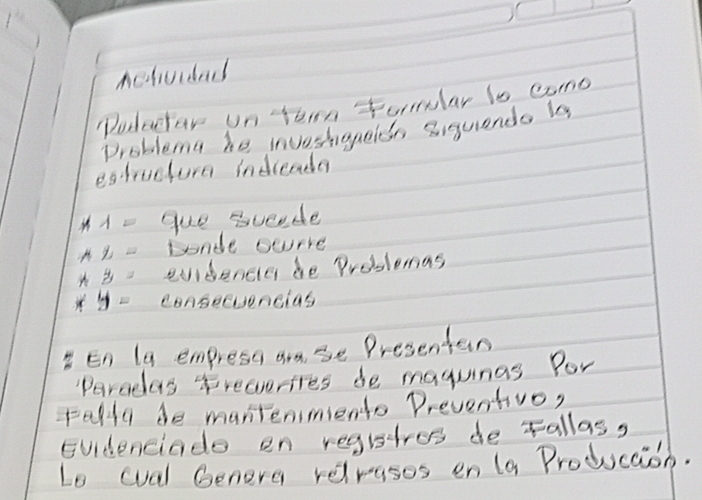 Actividad
Redactar un tema Formular lo como
Problema de investigación siguiendo la
estructura indicada
* 1 = que sucede
* 2 = Donde ocurre
* 3 = evidencia de Problemas
* 4 = consecuencias
En la empresa se Presentan
Paradas Frecuentes de maquinas Por
Falta de mantenimiento Preventivo,
Evidenciado en registros de Fallas,
Lo cual Genera retrasos en la Producción.